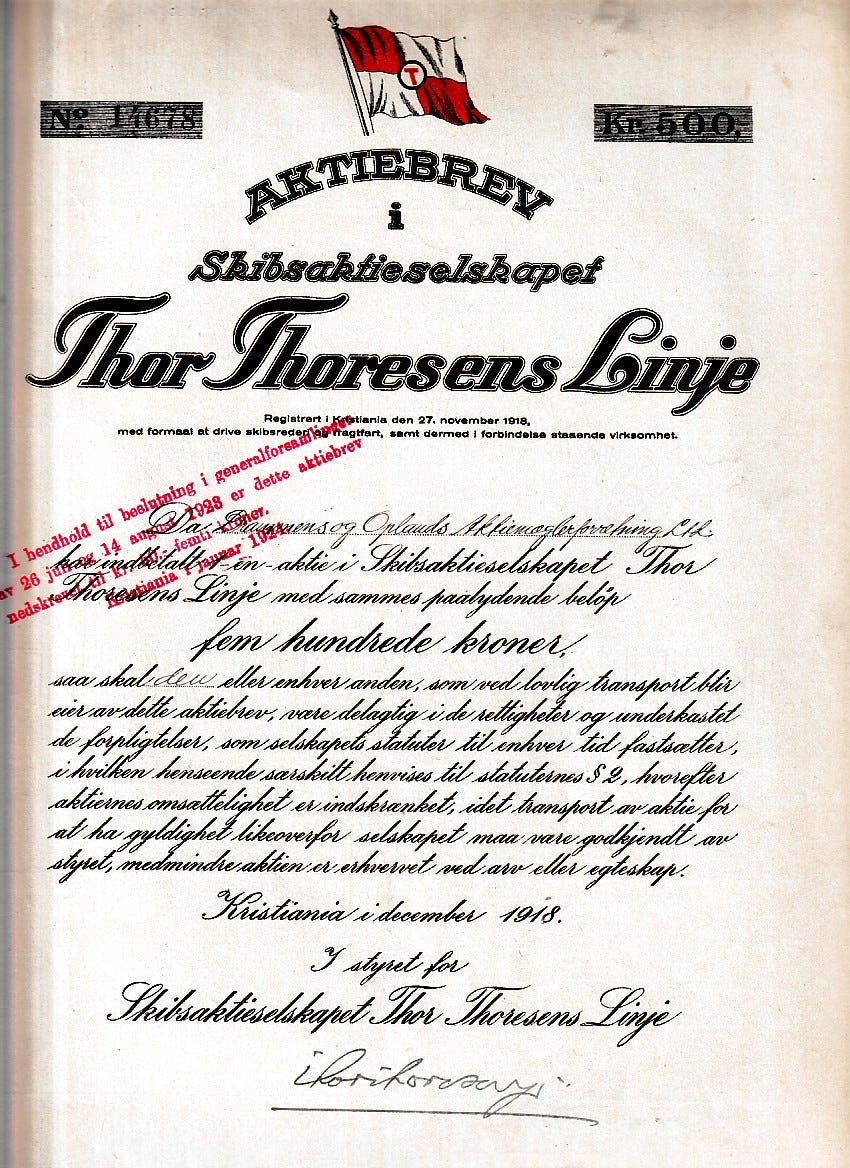 T
No. 14678
Kr. 500,
AKTIEBREV
i
Skibsaktieselskapet
Thor Thoresens Linje
Registrert i Kristiania den 27. november 1918,
med formaal at drive skibsrederi og fragtfart, samt dermed i forbindelse staaende virksomhet.
I henhold til beslutning i generalforsamlinger
av 26 juni og 14 august 1923 er dette aktiebrev
nedskrevet til kr. 50,- femti kroner.
Kristiania i januar 1924.
Da og Oplands Aktiemæglerforretning Ltd.
har indbetalt 1-en-aktie i Skibsaktieselskapet Thor
Thoresens Linje med sammes paalydende beløp
fem hundrede kroner,
saa skal den eller enhver anden, som ved lovlig transport blir
eier av dette aktiebrev, være delagtig i de rettigheter og underkastet
de forpligtelser, som selskapets statuter til enhver tid fastsætter,
i hvilken henseende særskilt henvises til statuternes § 2, hvorefter
aktiernes omsættelighet er indskrænket, idet transport av aktie for
at ha gyldighet likeoverfor selskapet maa være godkjendt av
styret, medmindre aktien er erhvervet ved arv eller egteskap.
Kristiania i december 1918.
I styret for
Skibsaktieselskapet Thor Thoresens Linje